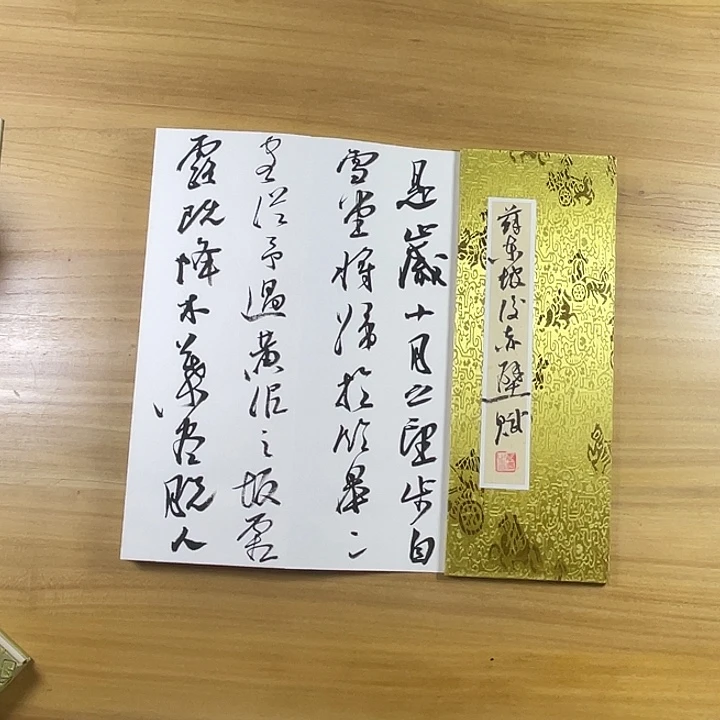 蘇東坡後赤壁賦
是歲十月之望步自
雪堂將歸於臨皋二
客從予過黃泥之坂霜
露既降木葉盡脫人